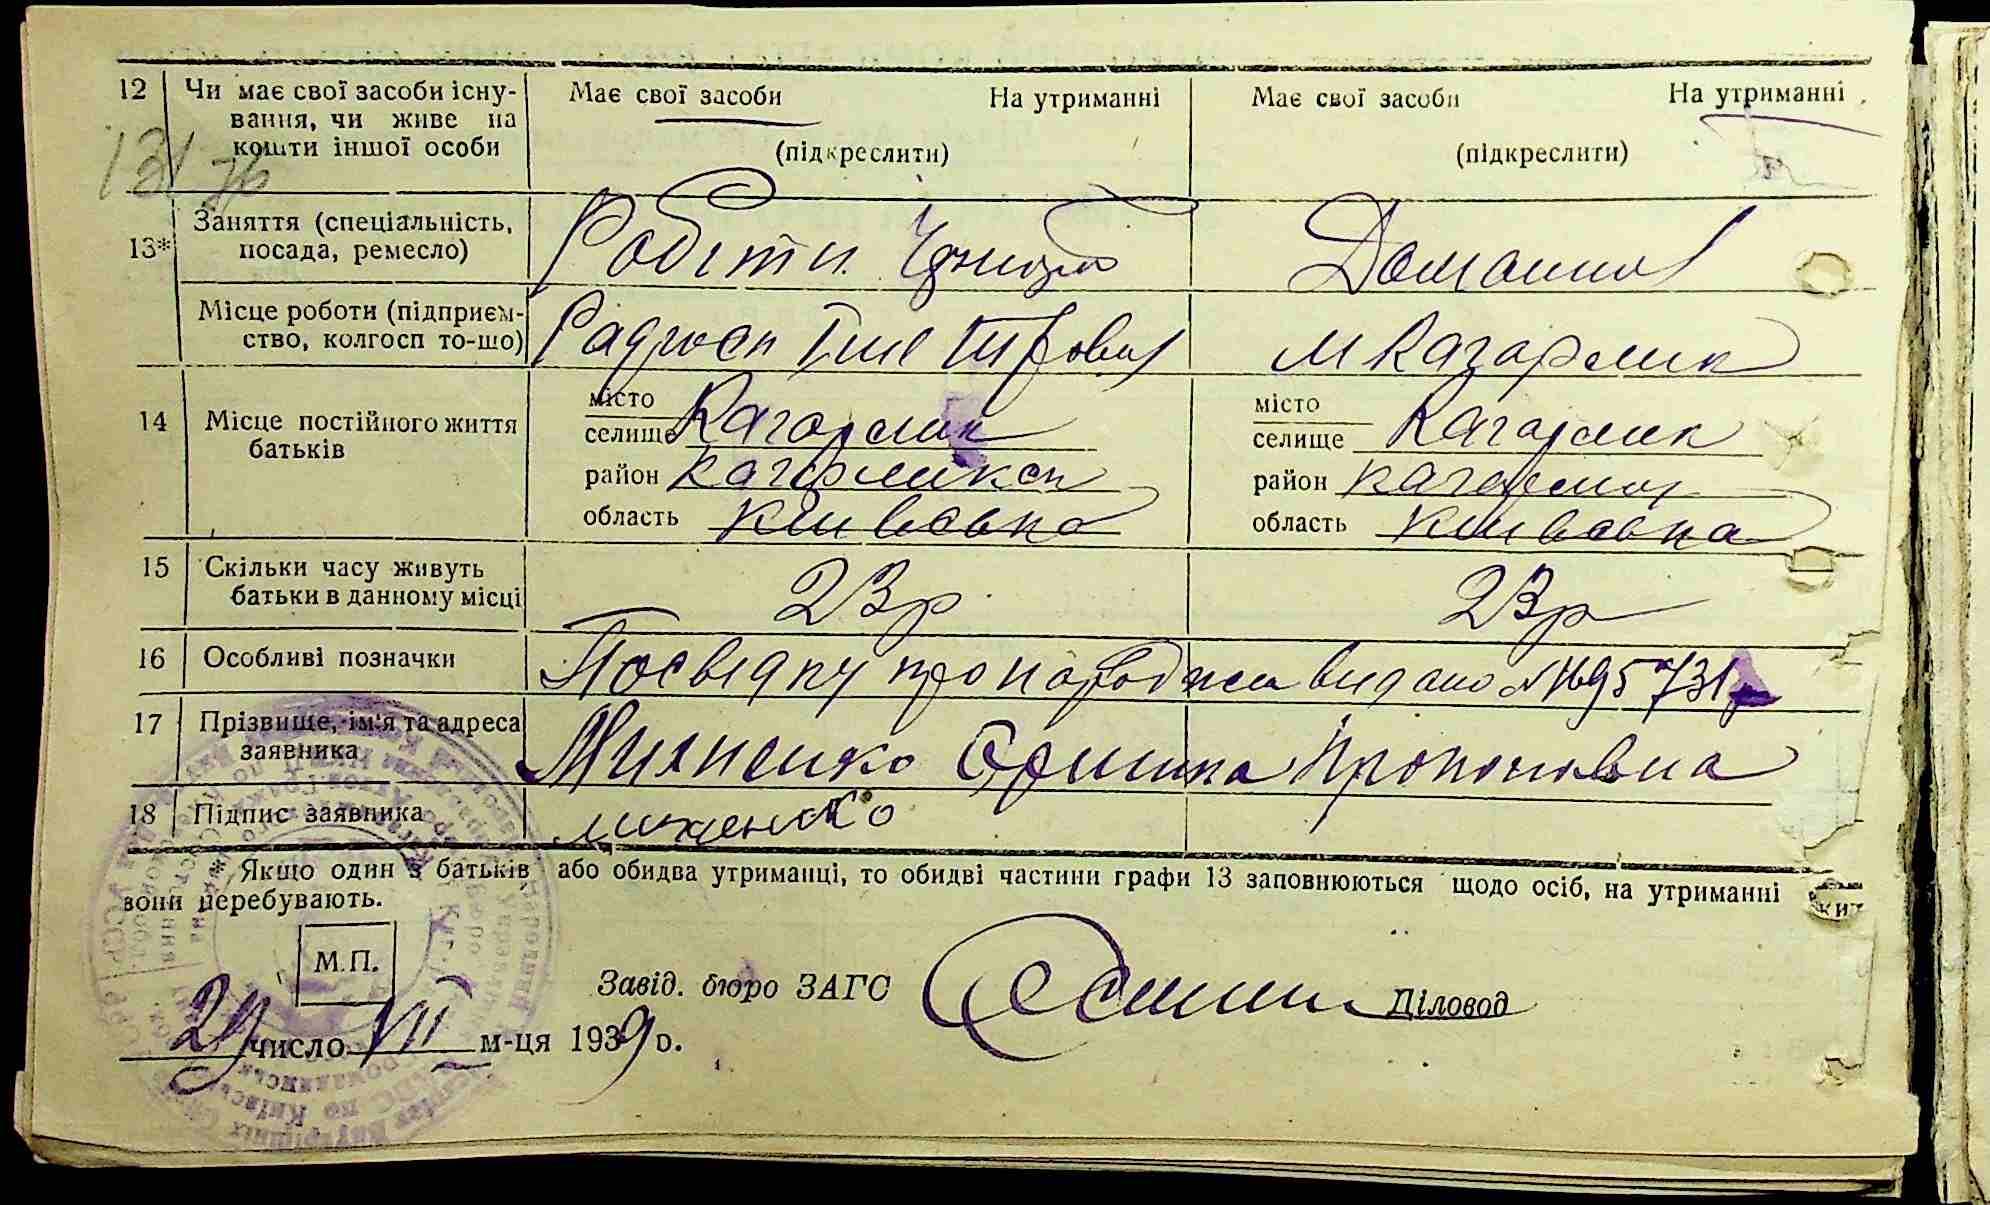 12 Чи має свої засоби існу-
вання, чи живе на
кошти іншої особи
Має свої засоби На утриманні
(підкреслити)
Має свої засоби На утриманні
(підкреслити)
13* Заняття (спеціальність,
посада, ремесло)
Робітн.
Домашня
Місце роботи (підприєм-
ство, колгосп то-що)
Радгосп
м Кагарлик
14 Місце постійного життя
батьків
місто
селище Кагарлик
район Кагарликск
область Київська
місто
селище Кагарлик
район Кагарлик
область Київська
15 Скільки часу живуть
батьки в данному місці
23 р.
23 р
16 Особливі позначки
Посвідку про народжен видано № 1695731
17 Прізвище, ім'я та адреса
заявника
Михненко Оришка Прокоповна
18 Підпис заявника
михненко
* Якщо один з батьків або обидва утриманці, то обидві частини графи 13 заповнюються щодо осіб, на утриманні
вони перебувають.
М.П.
Завід. бюро ЗАГС
Діловод
29 число VIII м-ця 1939 р.